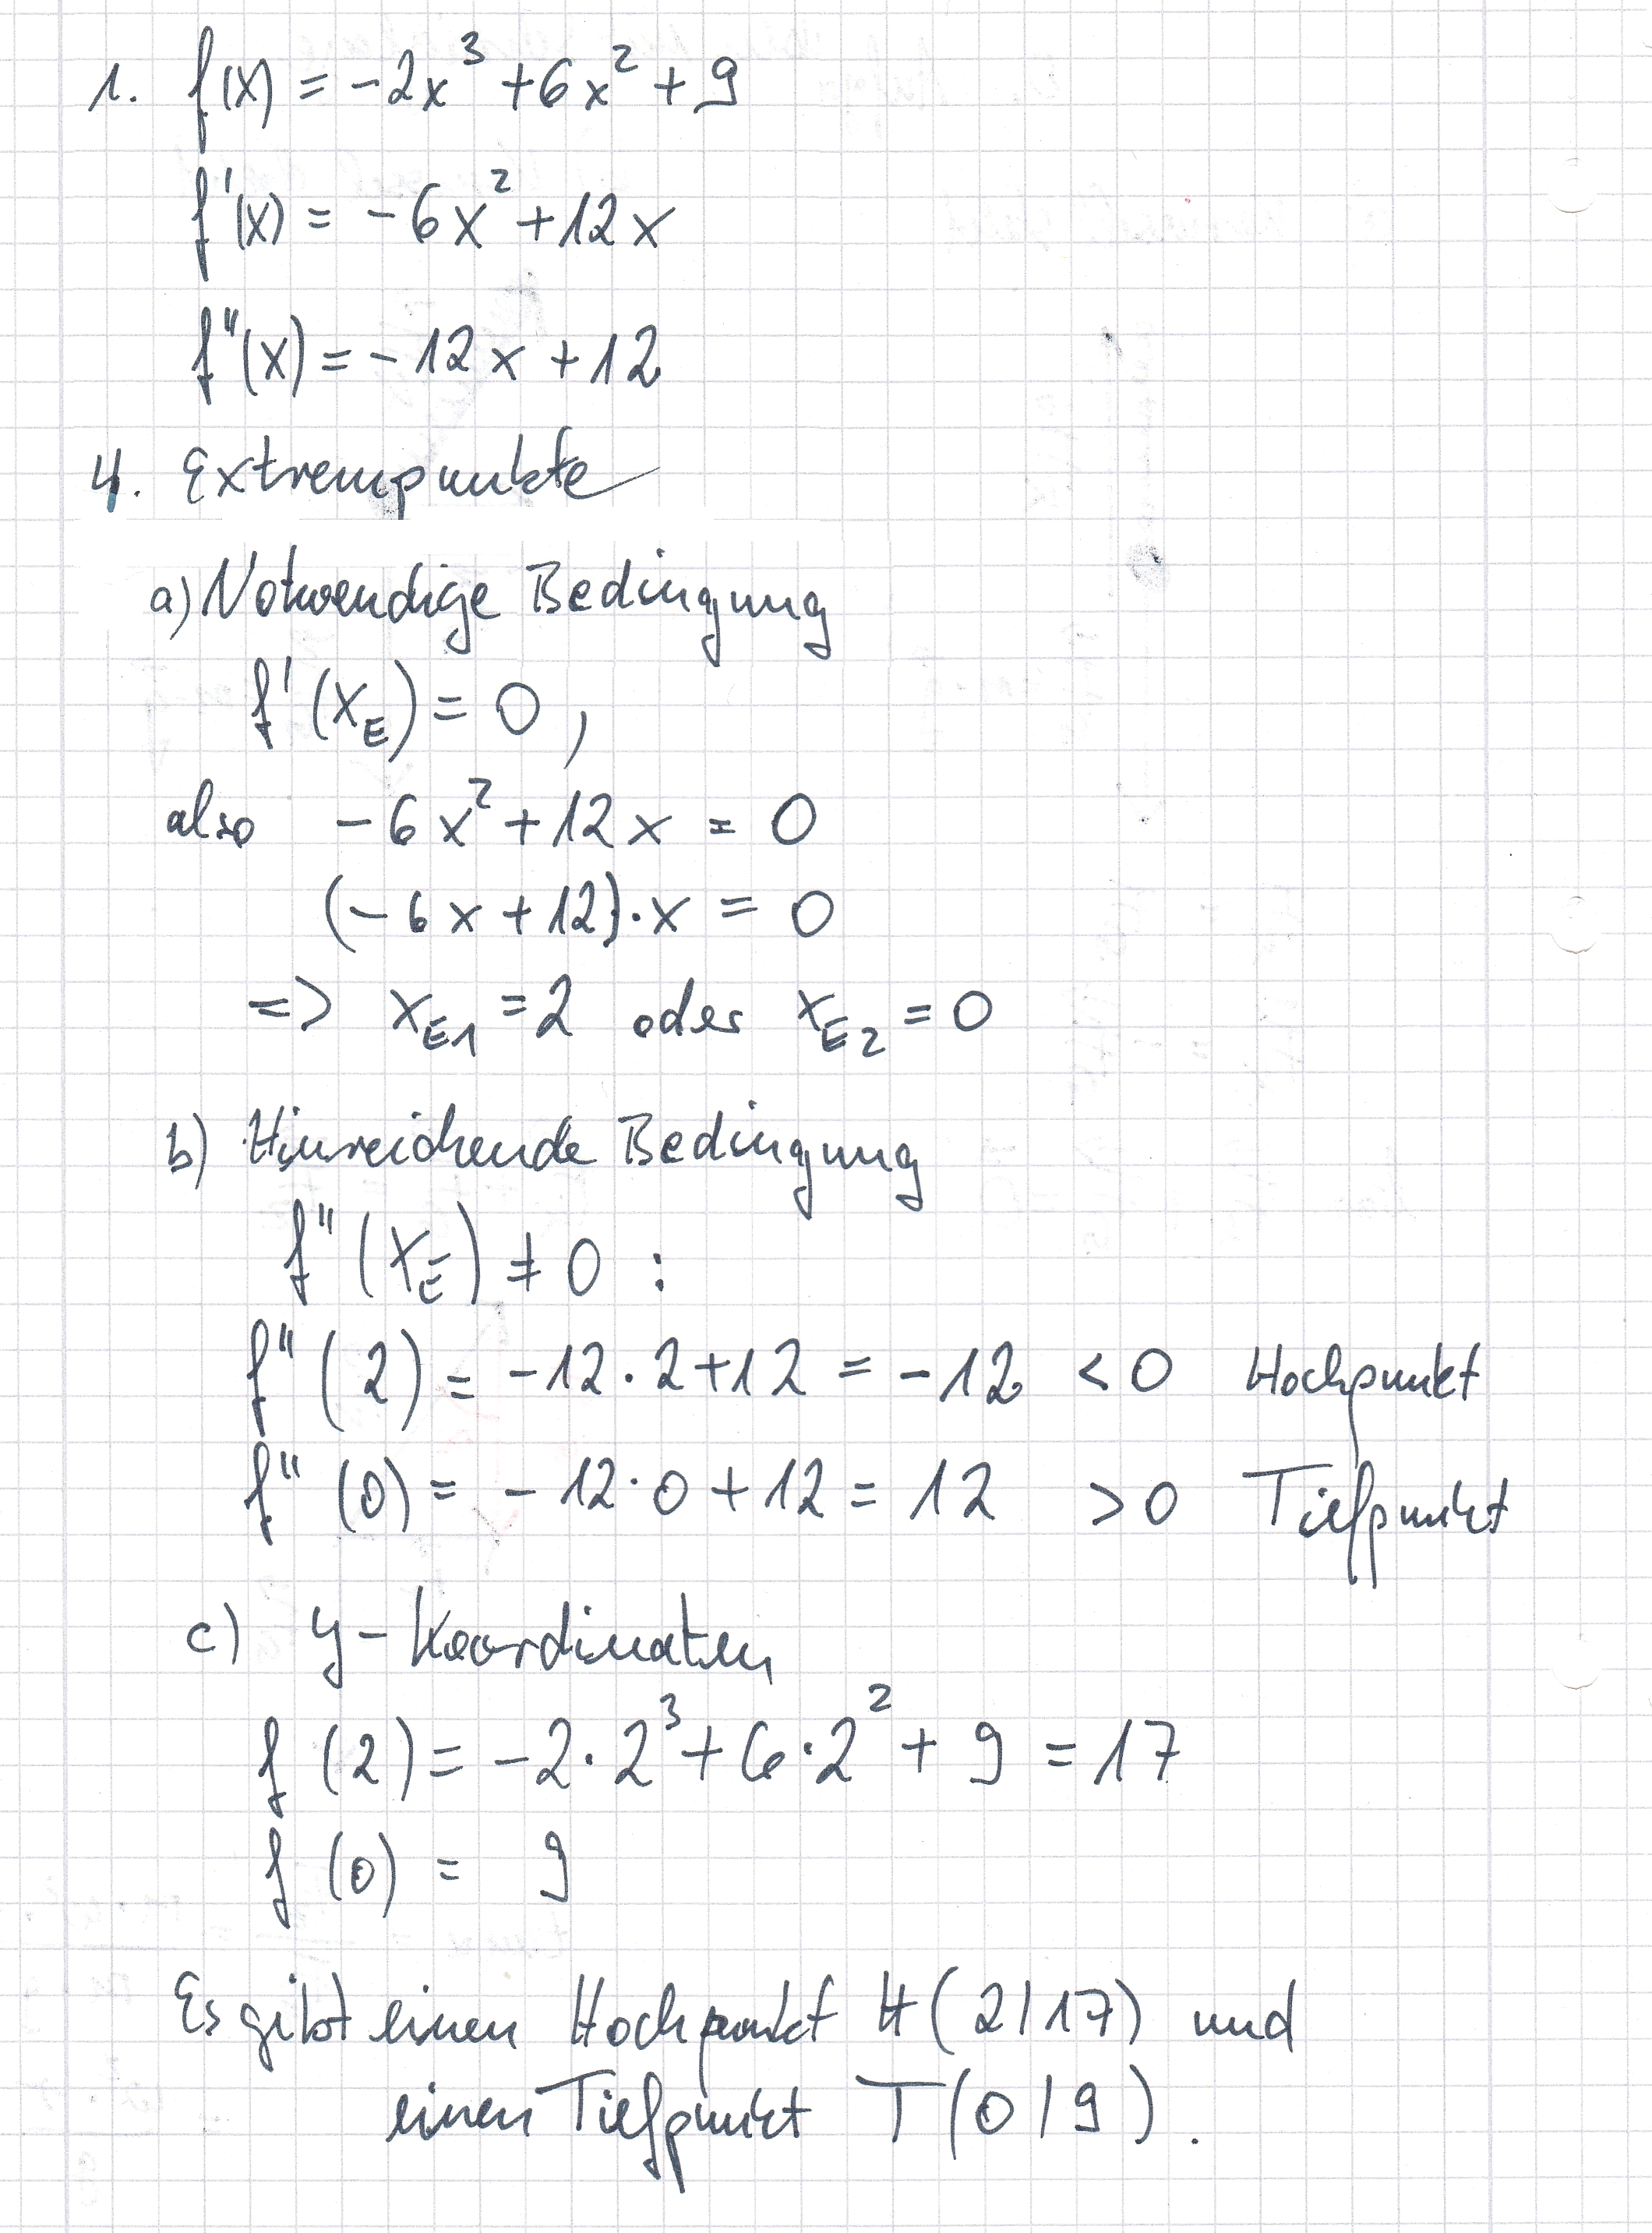 1. f(x) = -2x³ + 6x² + 9
f'(x) = -6x² + 12x
f''(x) = -12x + 12
4. Extrempunkte
a) Notwendige Bedingung
f'(x_E) = 0,
also -6x² + 12x = 0
(-6x + 12)·x = 0
=> x_E1 = 2 oder x_E2 = 0
b) Hinreichende Bedingung
f''(x_E) ≠ 0 :
f''(2) = -12·2 + 12 = -12 < 0 Hochpunkt
f''(0) = -12·0 + 12 = 12 > 0 Tiefpunkt
c) y-Koordinaten
f(2) = -2·2³ + 6·2² + 9 = 17
f(0) = 9
Es gibt einen Hochpunkt H(2|17) und
einen Tiefpunkt T(0|9).